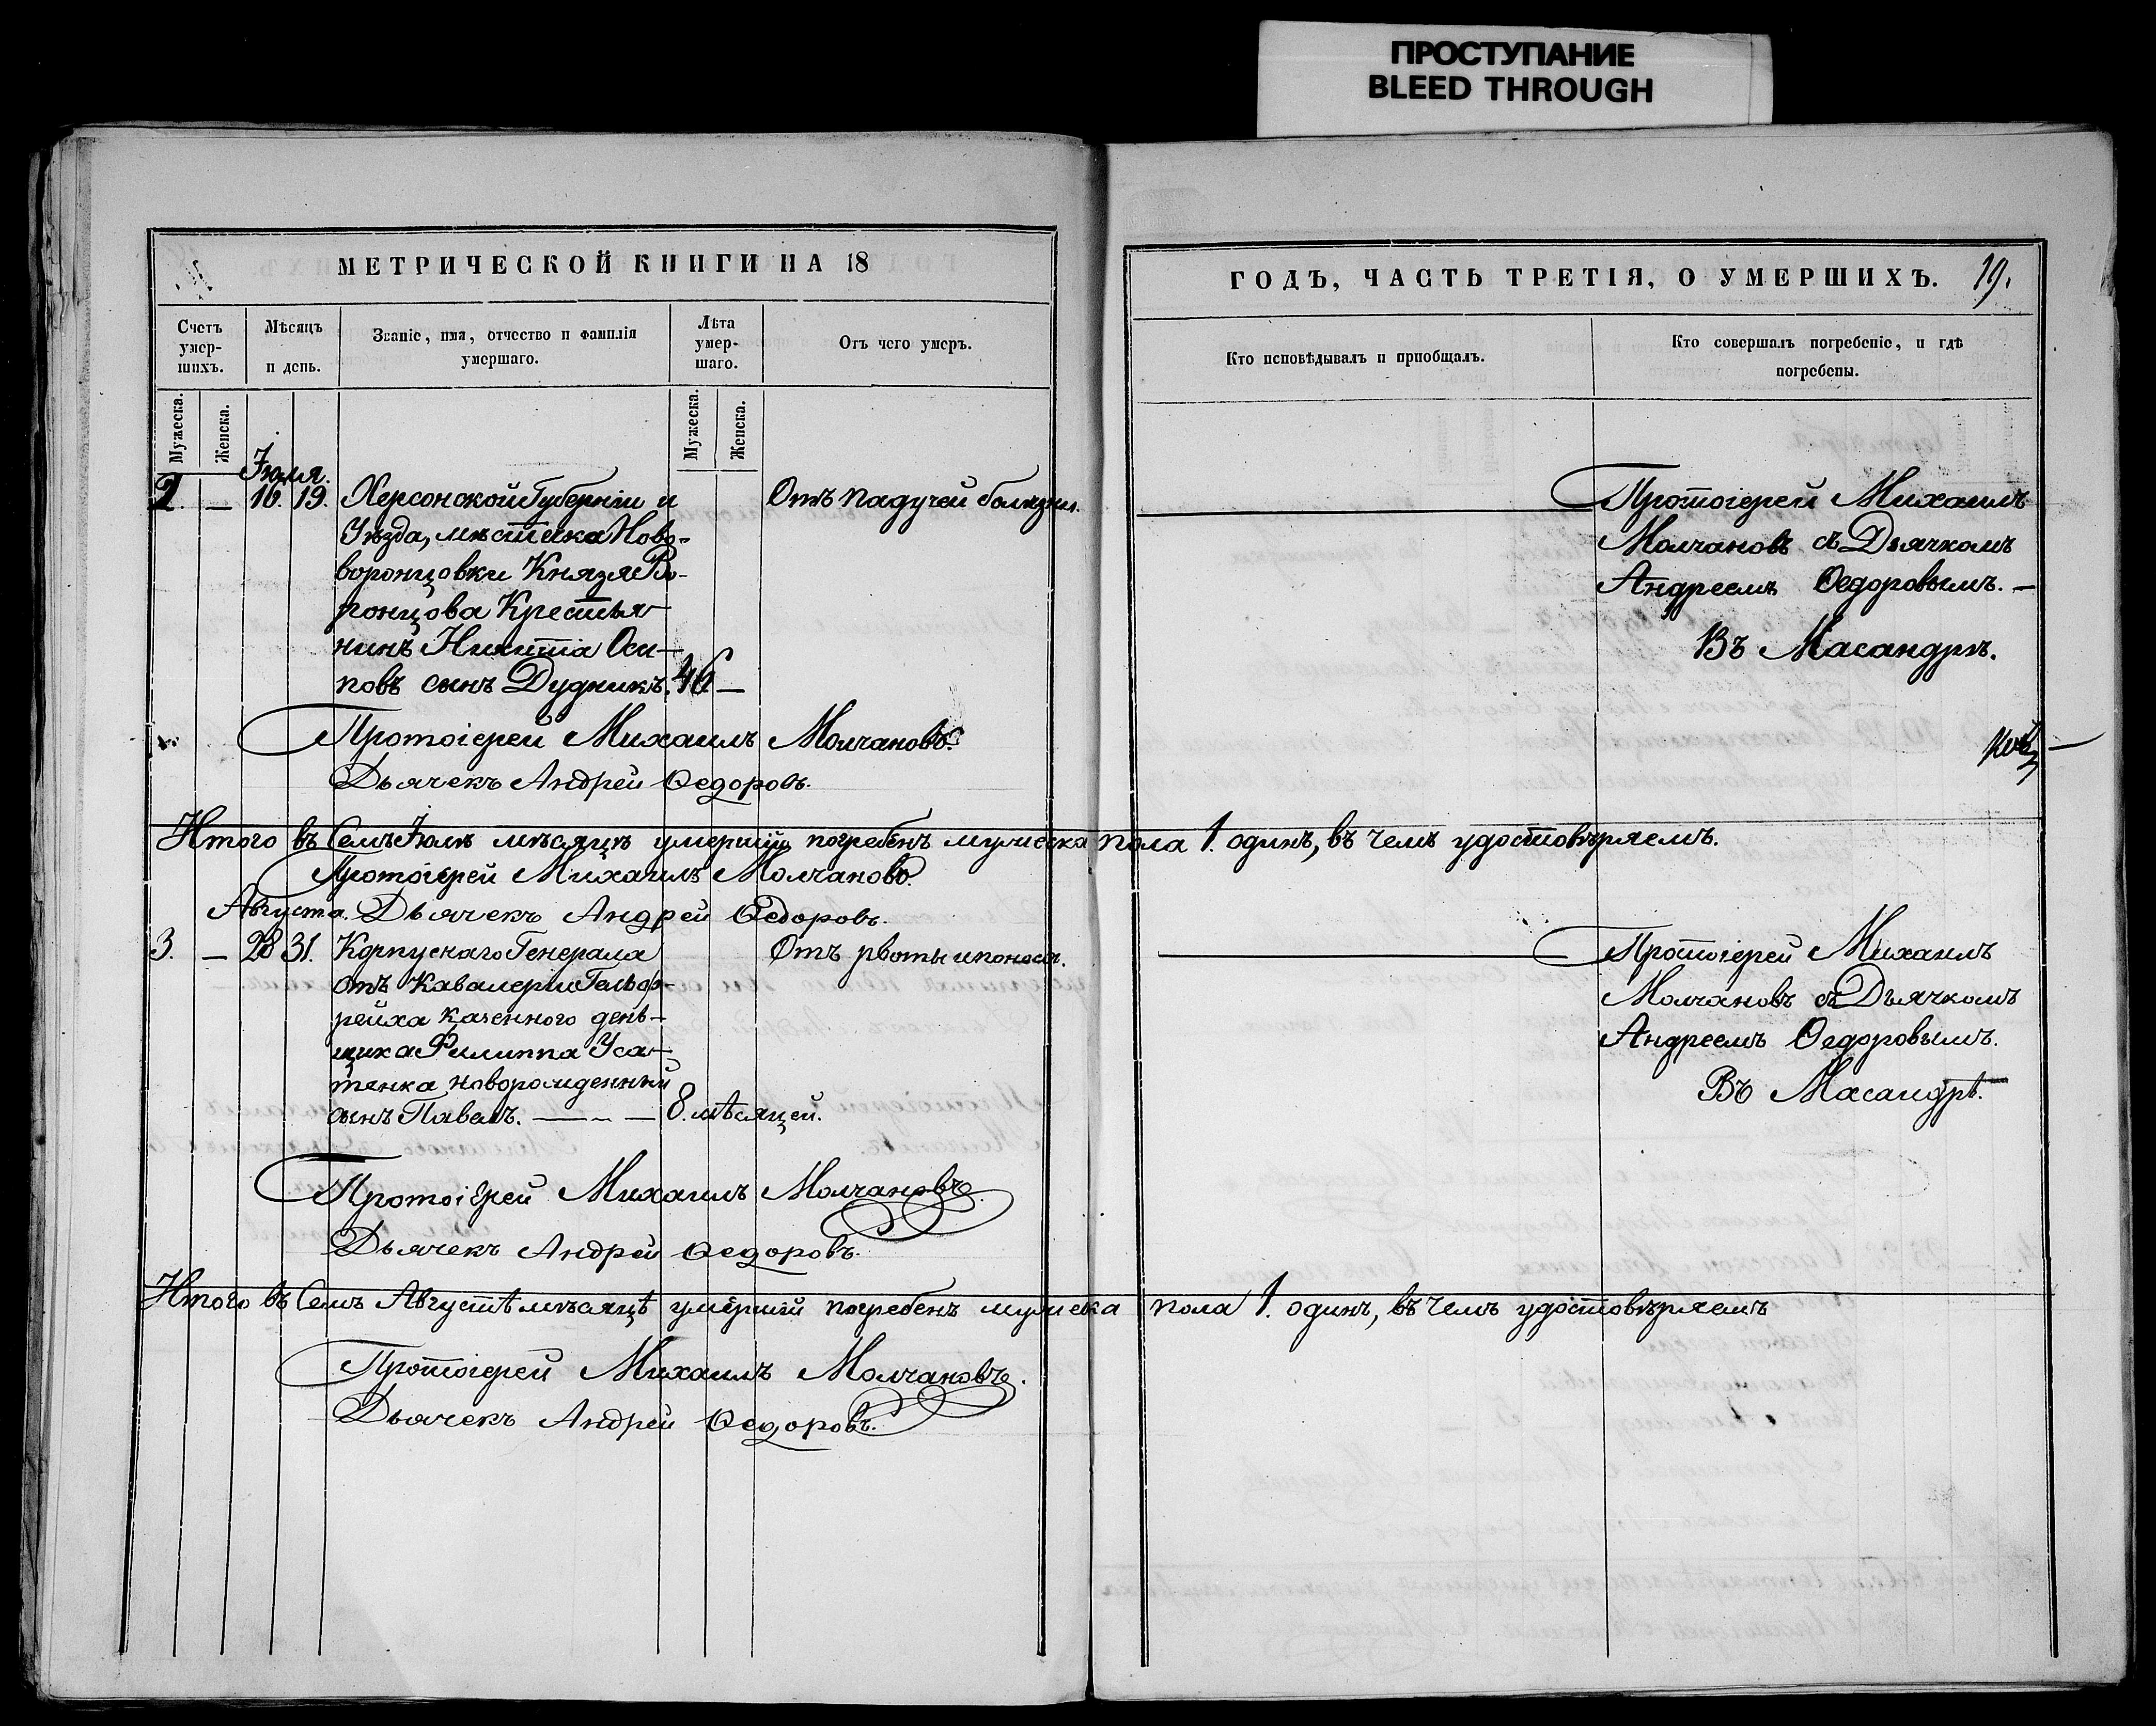 ПРОСТУПАНИЕ
BLEED THROUGH
МЕТРИЧЕСКОЙ КНИГИ НА 18
Счетъ умер-шихъ.
Мѣсяцъ и день.
Званіе, имя, отчество и фамилія умершаго.
Лѣта умер-шаго.
Отъ чего умеръ.
Мужеска.
Женска.
Мужеска.
Женска.
Іюля.
2. — 16. 19. Херсонской Губерніи и
Уѣзда, мѣстечка Ново-
воронцовки Князя Во-
ронцова Крестья-
нинъ Никита Оси-
повъ сынъ Дудникъ. 46 —
Отъ падучей болѣзни.
Протоіерей Михаилъ Молчановъ.
Дьячекъ Андрей Ѳедоровъ.
Итого въ Семъ Іюлѣ мѣсяцѣ умершій погребенъ мужеска пола 1. одинъ, въ чемъ удостовѣряемъ.
Протоіерей Михаилъ Молчановъ.
Августа. Дьячекъ Андрей Ѳедоровъ.
3. — 28 31. Корпуснаго Генерала
отъ Кавалеріи Гельф-
рейха казенного день-
щика Филиппа Уса-
тенка новорожденный
сынъ Павелъ. — — — 8. мѣсяцей.
Отъ рвоты и поноса.
Протоіерей Михаилъ Молчановъ.
Дьячекъ Андрей Ѳедоровъ.
Итого въ Семъ Августѣ мѣсяцѣ умершій погребенъ мужеска пола 1. одинъ, въ чемъ удостовѣряемъ
Протоіерей Михаилъ Молчановъ.
Дьячекъ Андрей Ѳедоровъ.
ГОДЪ, ЧАСТЬ ТРЕТІЯ, О УМЕРШИХЪ. 19.
Кто исповѣдывалъ и пріобщалъ.
Кто совершалъ погребеніе, и гдѣ
погребены.
Протоіерей Михаилъ
Молчановъ съ Дьячкомъ
Андреемъ Ѳедоровымъ. —
Въ Масандрѣ.
Протоіерей Михаилъ
Молчановъ съ Дьячкомъ
Андреемъ Ѳедоровымъ.
Въ Масандрѣ.